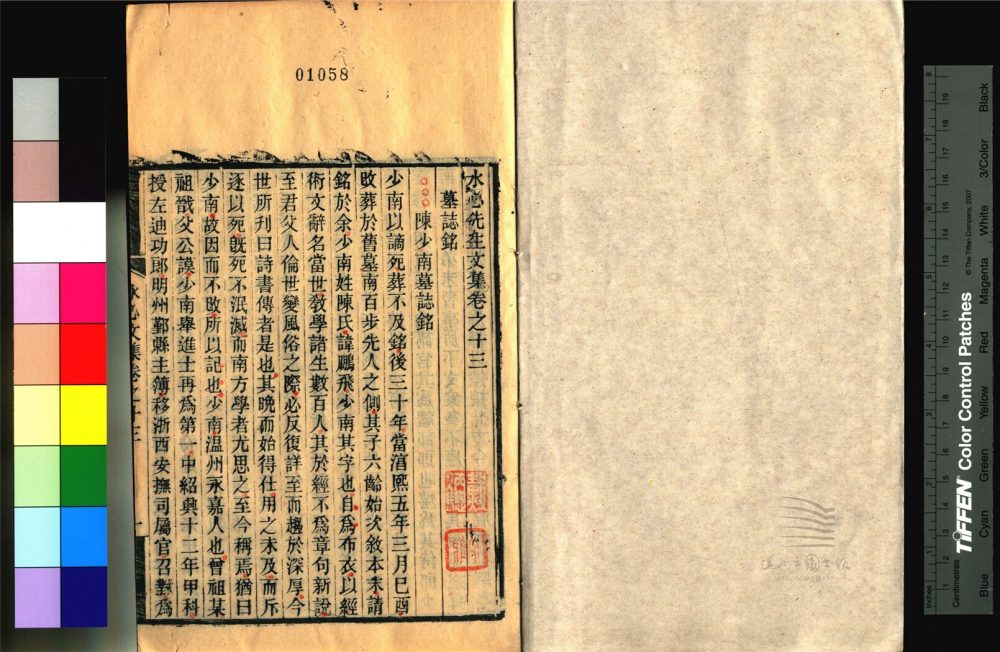 01058
水心先生文集卷之十三
墓誌銘
陳少南墓誌銘
少南以謫死葬不及銘後三十年當淳熙五年三月巳酉
改葬於舊墓南百步先人之側其子六齡始次敘本末請
銘於余少南姓陳氏諱鵬飛少南其字也自爲布衣以經
術文辭名當世教學諸生數百人其於經不爲章句新說
至君父人倫世變風俗之際必反復詳至而趨於深厚今
世所刊曰詩書傳者是也其晩而始得仕用之未及而斥
逐以死旣死不泯滅而南方學者尤思之至今稱焉猶曰
少南故因而不改所以記也少南温州永嘉人也曾祖某
祖戩父公謨少南舉進士再爲第一中紹興十二年甲科
授左迪功郎明州鄞縣主簿移浙西安撫司屬官召對爲
水心文集卷之十三
一
8 7 6 5 4 3 2 1 Inches
19 18 17 16 15 14 13 12 11 10 9 8 7 6 5 4 3 2 1 Centimetres
TIFFEN Color Control Patches
© The Tiffen Company, 2007
Blue Cyan Green Yellow Red Magenta White 3/Color Black